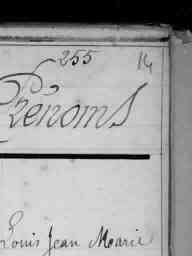 255 14
Prenoms
Louis Jean Marie